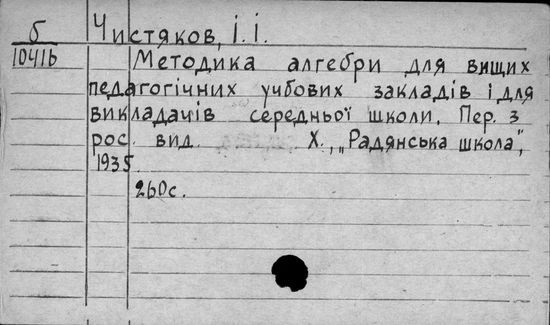 б Чистяков, І. І.
10416 Методика алгебри для вищих
педагогічних учбових закладів і для
викладачів середньої школи. Пер. з
рос. вид. Х., „Радянська школа",
1935
260с.